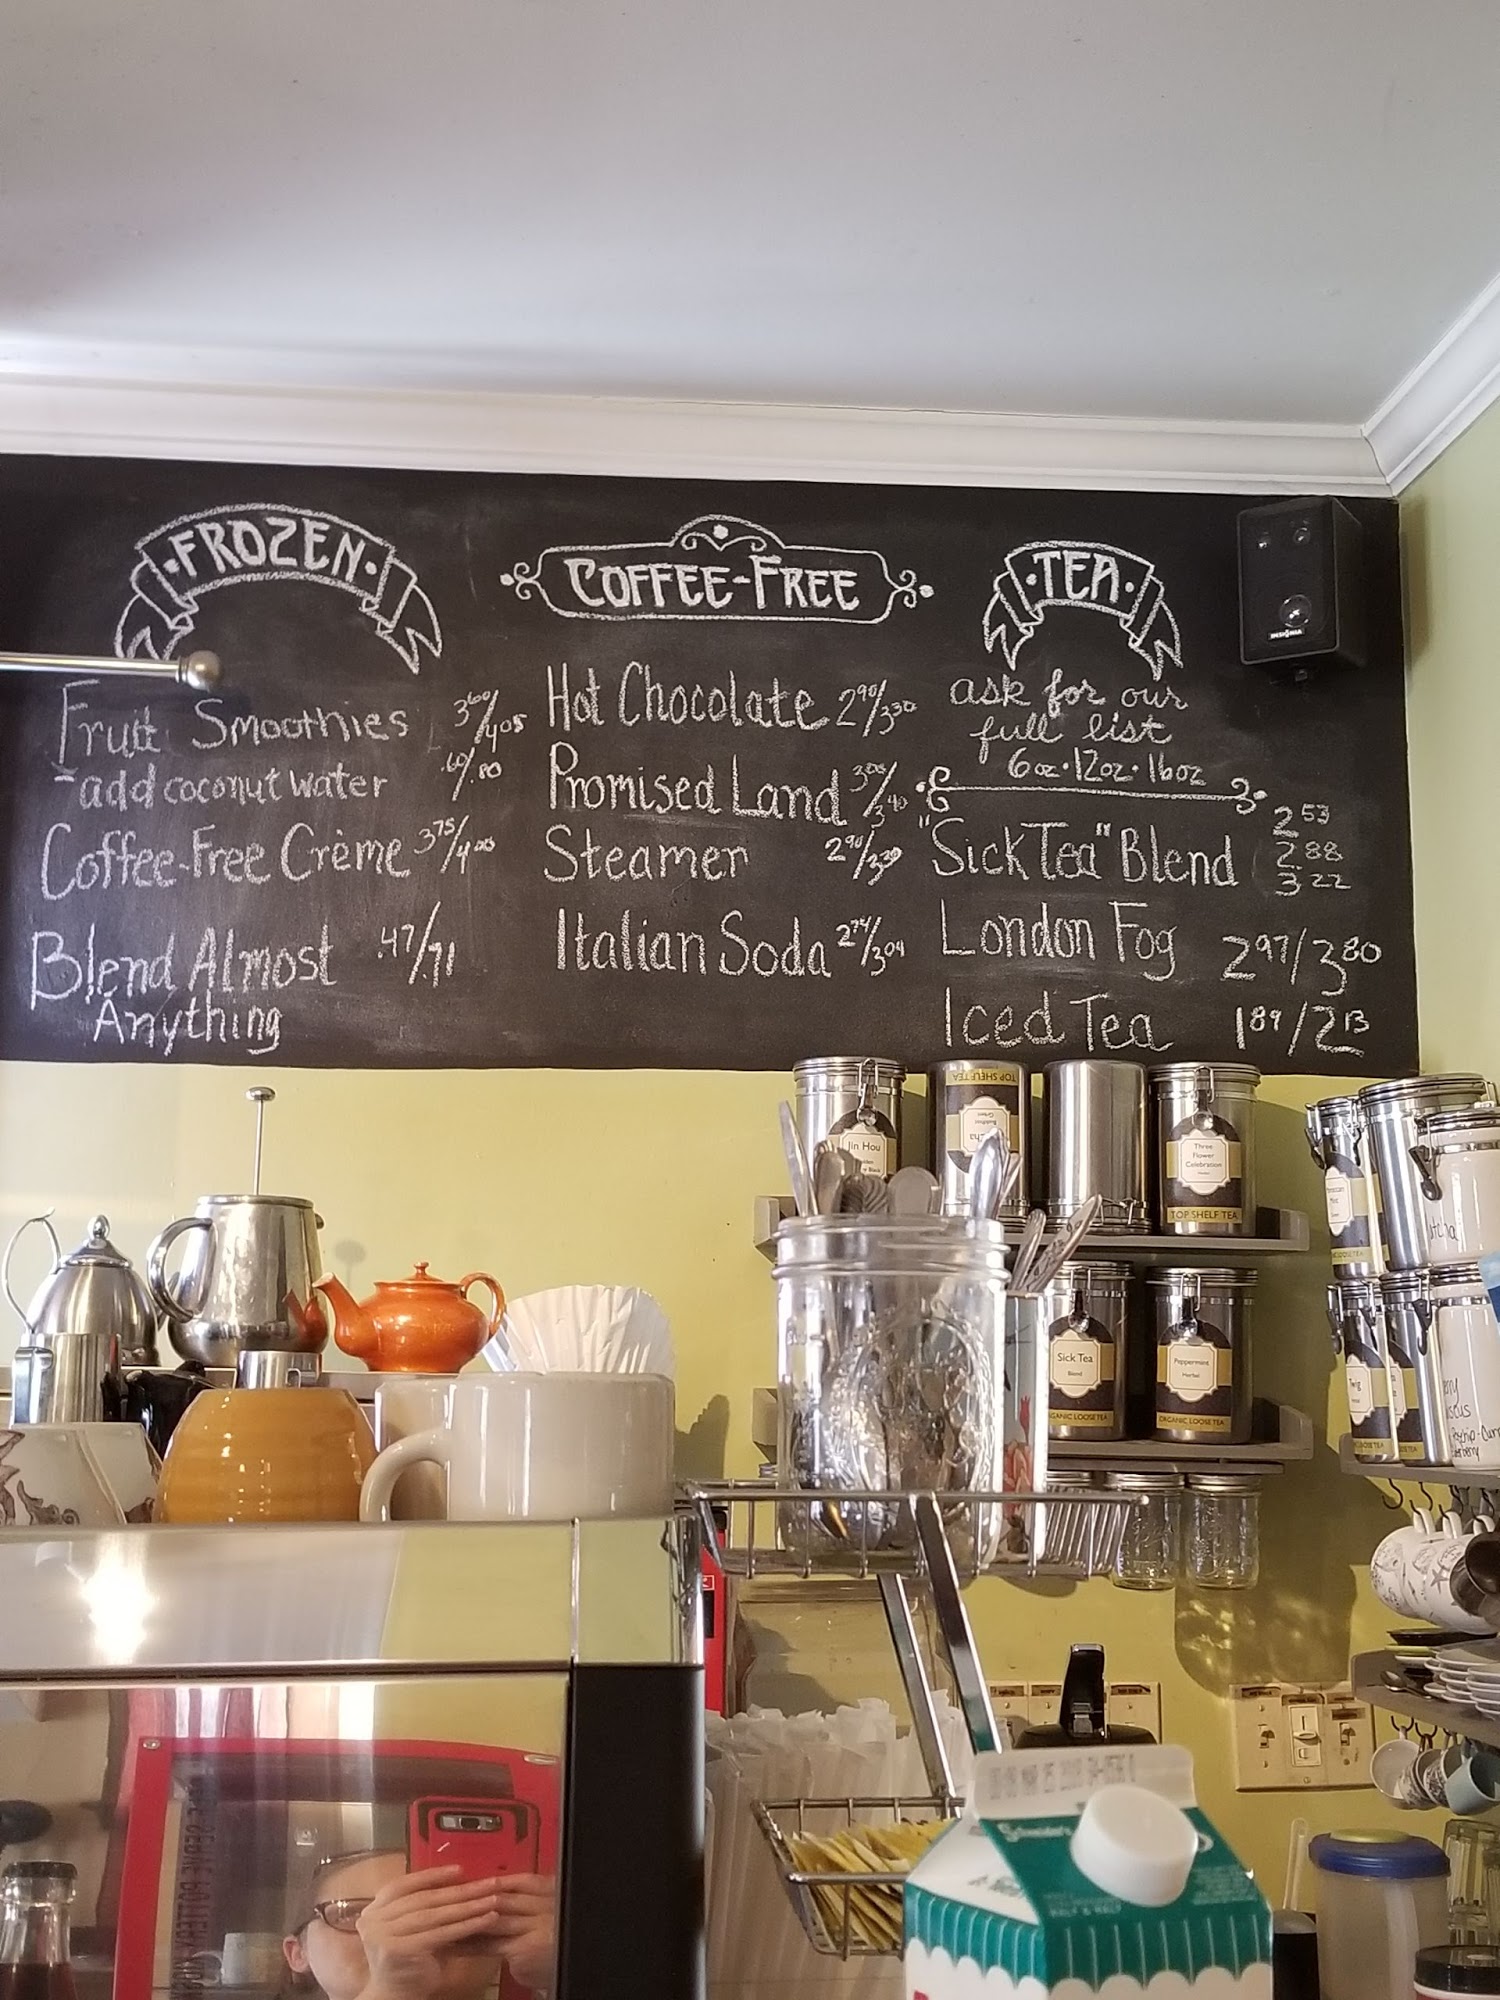 FROZEN
Fruit Smoothies 3.60/4.05
add coconut water .60/.80
Coffee-Free Crème 3.75/4.00
Blend Almost .47/.71
Anything
COFFEE-FREE
Hot Chocolate 2.90/3.30
Promised Land
Steamer 2.90/3.30
Italian Soda 2.74/3.04
TEA
ask for our
full list
6oz·12oz·16oz
"Sick Tea" Blend 2.53
2.88
3.22
London Fog 2.97/3.80
Iced Tea 1.89/2.13
INSIGNIA
Jin Hou
TOP SHELF TEA
Three
Flower
Celebration
TOP SHELF TEA
Sick Tea
Blend
ORGANIC LOOSE TEA
Peppermint
Herbal
ORGANIC LOOSE TEA
Twig